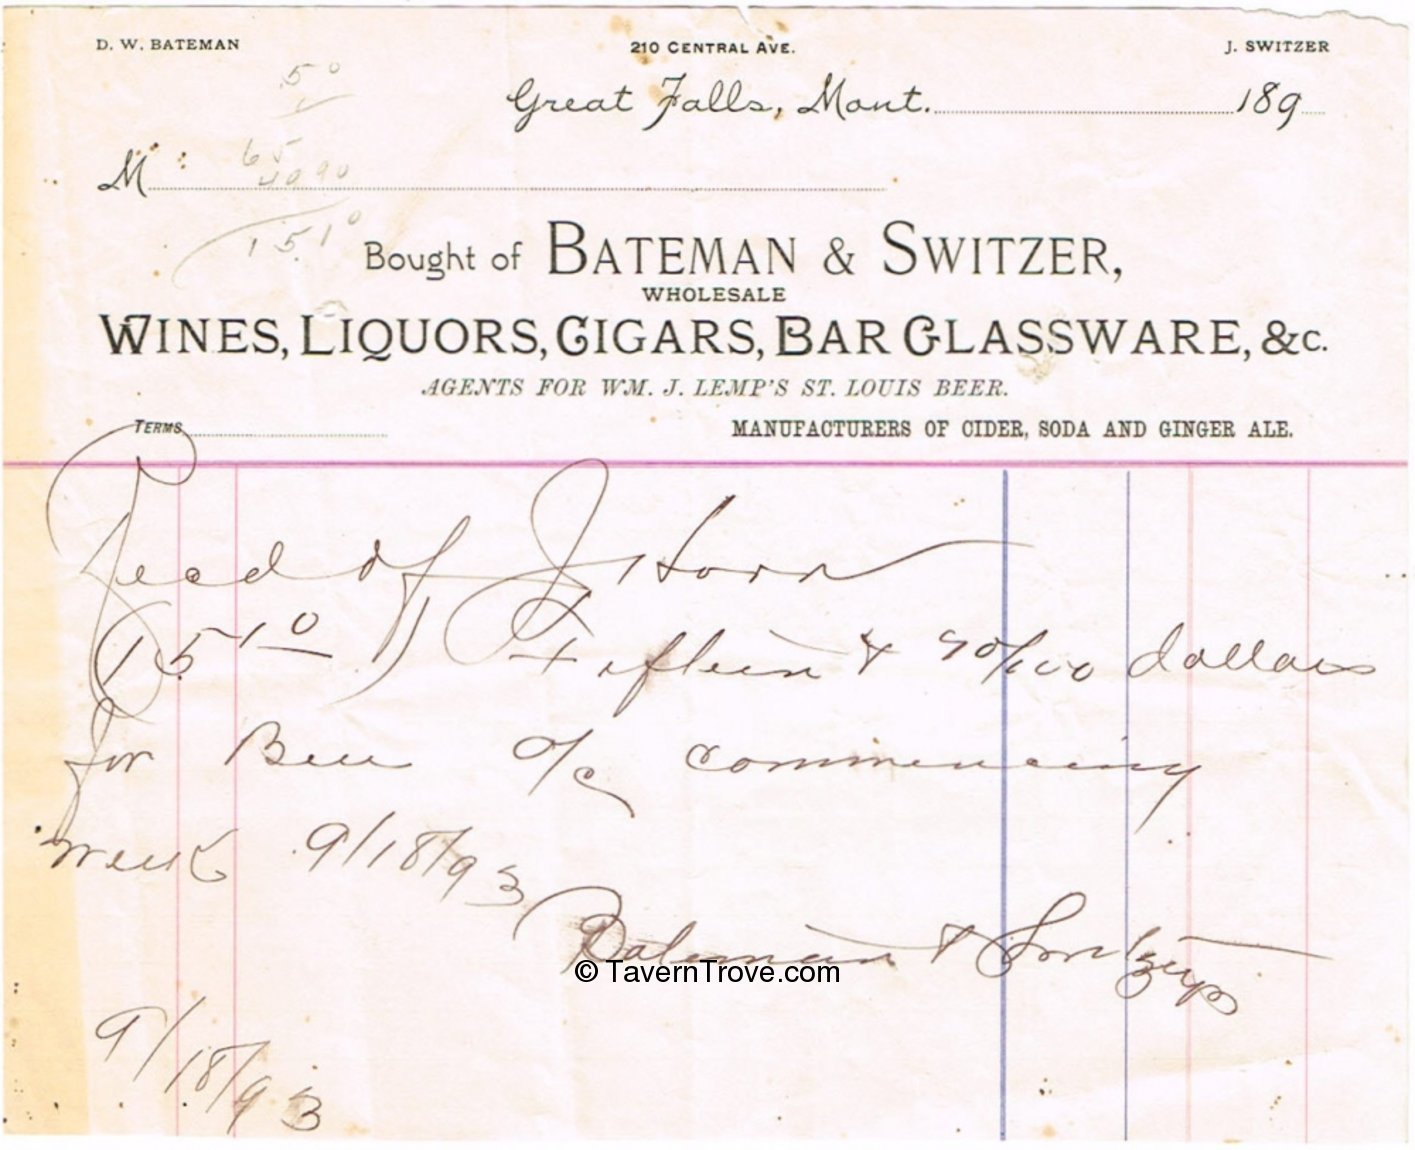 D. W. BATEMAN 210 CENTRAL AVE. J. SWITZER
50
Great Falls, Mont. 189
65
M
1510
Bought of BATEMAN & SWITZER,
WHOLESALE
WINES, LIQUORS, CIGARS, BAR GLASSWARE, &c.
AGENTS FOR WM. J. LEMP'S ST. LOUIS BEER.
TERMS MANUFACTURERS OF CIDER, SODA AND GINGER ALE.
Recd of J Horn
(15 10) Fifteen & 10/100 dollars
for Beer a/c commencing
week 9/18/93
Bateman & Switzer
© TavernTrove.com
9/18/93